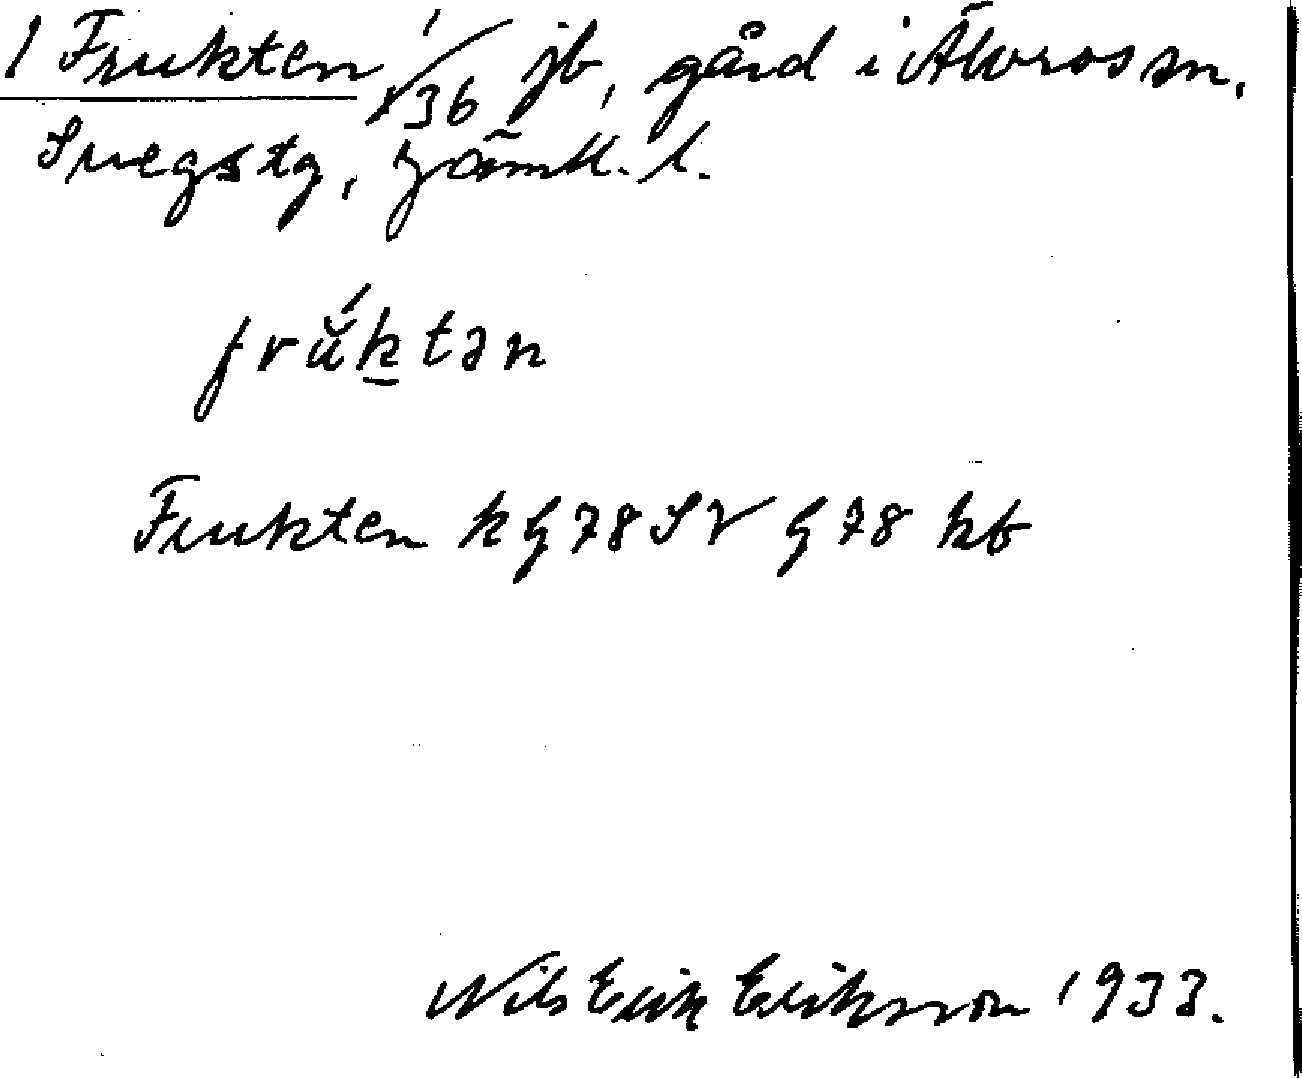 1 Frukten 1/36 jb, gård i Älvros sn,
Svegs tg, Jämtl. l.
frŭ́ktən
Frukten k G 78 SV G 78 kb
Nils Erik Eriksson 1933.